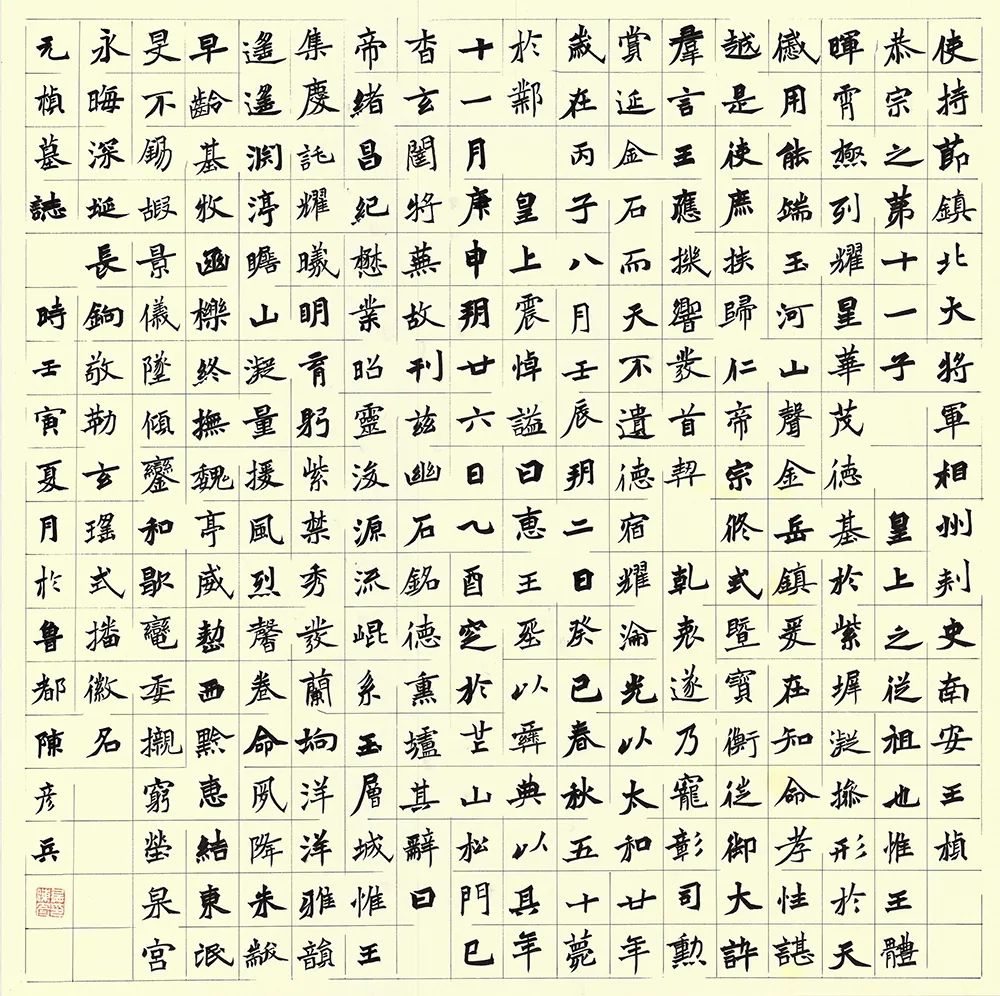 使持節鎮北大將軍相州刾史南安王楨
恭宗之第十一子 皇上之從祖也惟王體
暉霄極列耀星華茂德基於紫墀凝操形於天
感用能端玉河山聲金岳鎮爰在知命孝性諶
越是使庶族歸仁帝宗攸式暨寶衡從御大訊
羣言王應機響發首契 乾衷遂乃寵彰司勳
賞延金石而天不遺德宿耀淪光以太和廿年
歲在丙子八月壬辰朔二日癸巳春秋五十薨
於鄴 皇上震悼謚曰惠王葬以彝典以具年
十一月庚申朔廿六日乙酉窆於芒山松門已
杳玄闥將蕪故刊茲幽石銘德熏壚其辭曰
帝緒昌紀懋業昭靈浚源流崐系玉層城惟王
集慶託耀曦明育躬紫禁秀發蘭坰洋洋雅韻
遙遙淵渟瞻山凝量援風烈馨卷命夙降朱黻
早齡基牧函櫟終撫魏亭威懃西黔惠結東氓
旻不錫嘏景儀墜傾鑾和歇轙委櫬窮塋泉宮
永晦深埏長銄敬勒玄瑤式播徽名
元楨墓誌 時壬寅夏月於魯都陳彥兵